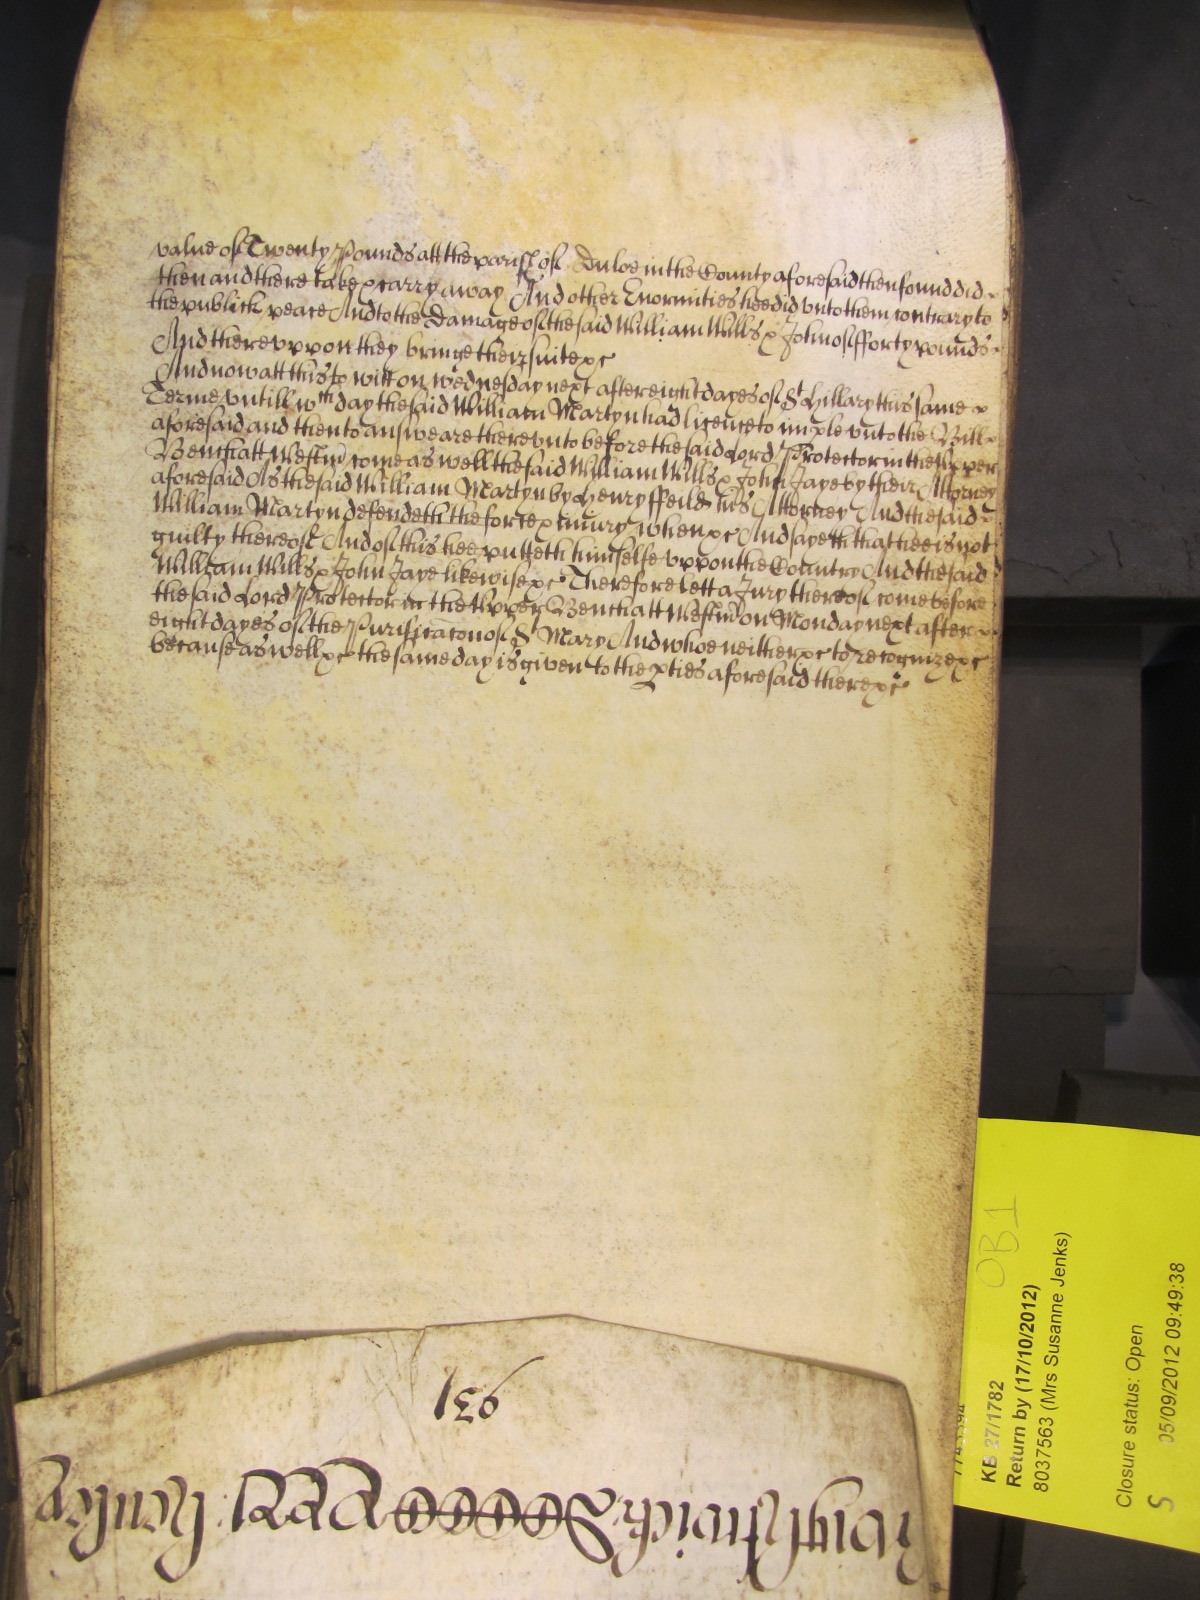 value of Twenty Pounds att the parish of Duloe in the County aforesaid then found did
then and there take & carry away And other Enormities hee did unto them contrary to
the publick peace And to the Damage of the said William Wills & John of fforty pounds
And thereuppon they bringe their suite &c
And now att this to witt on Wednesday next after eight dayes of St Hillary this same
Terme untill wch day the said William Martyn had licence to imple unto the Bill
aforesaid and then to answeare thereunto before the said Lord Protector in the Upper
Bench att Westmr come as well the said William Wills & John Jaye by their Attorney
aforesaid As the said William Martyn by Henry ffeild his Attorney And the said
William Martyn defendeth the force & iniury when &c And sayeth that hee is not
guilty thereof And of this hee putteth himselfe uppon the Country And the said
William Wills & John Jaye likewise &c Therefore lett a Jury thereof come before
the said Lord Protector in the Upper Bench att Westmr on Monday next after
eight dayes of the Purificacon of St Mary And whoe neither &c to recognize &c
because as well &c the same day is given to the pties aforesaid there &c
KB 27/1782
OB1
Return by (17/10/2012)
8037563 (Mrs Susanne Jenks)
Closure status: Open
05/09/2012 09:49:38
S